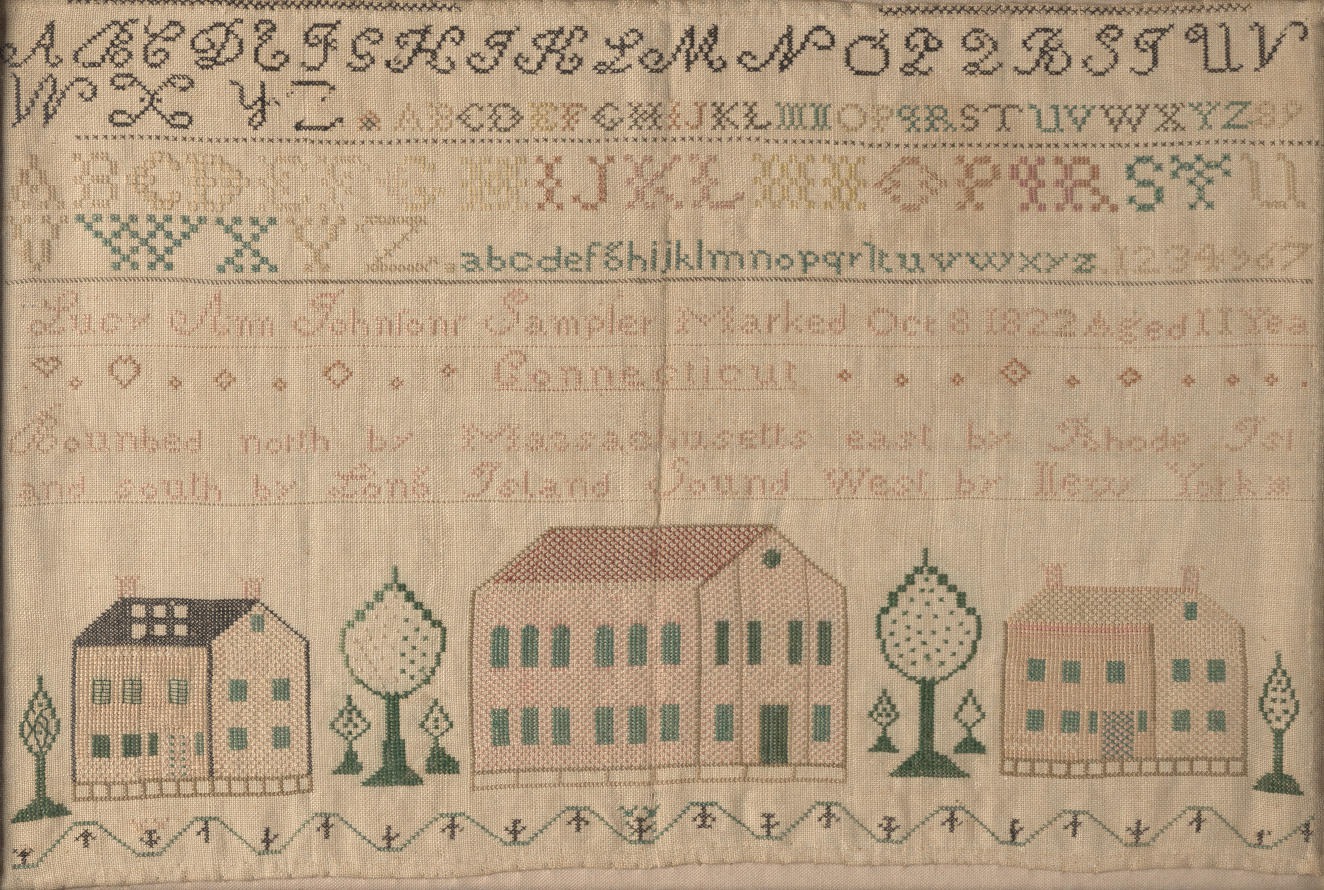 A B C D E F G H I K L M N O P Q R S T U V
W X Y Z A B C D E F G H I J K L M N O P Q R S T U V W X Y Z 8 9
A B C D E F G H I J K L M N O P Q R S T U
V W X Y Z
a b c d e f g h i j k l m n o p q r ſ t u v w x y z 1 2 3 4 5 6 7
Lucy Ann Johnſons Sampler Marked Oct 8 1822 Aged 11 Yea
Connecticut
Bounded north by Massachusetts east by Rhode Isl
and south by Long Island Sound West by New York